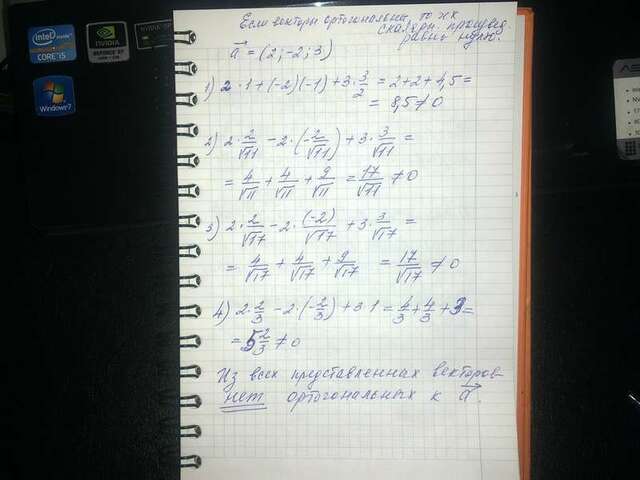 Если векторы ортогональны, то их
скалярн. произвед.
равно нулю.
a⃗ = (2; -2; 3)
1) 2·1+(-2)(-1)+3·3/2 = 2+2+4,5=
= 8,5 ≠ 0
2) 2·2/√11 -2·(-2/√11) + 3·3/√11 =
= 4/√11 + 4/√11 + 9/√11 = 17/√11 ≠ 0
3) 2·2/√17 -2·(-2)/√17 + 3·3/√17 =
= 4/√17 + 4/√17 + 9/√17 = 17/√17 ≠ 0
4) 2·2/3 -2·(-2/3) + 3·1 = 4/3 + 4/3 + 3 =
= 5 2/3 ≠ 0
Из всех представленных векторов
нет ортогональных к a⃗.
intel
CORE i5
NVIDIA
GEFORCE
Windows 7